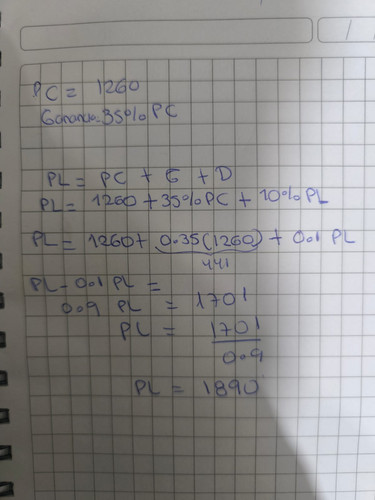 PC = 1260
Ganando 35% PC
PL = PC + G + D
PL = 1260 + 35% PC + 10% PL
PL = 1260 + 0.35(1260) + 0.1 PL
441
PL - 0.1 PL =
0.9 PL = 1701
PL = 1701
0.9
PL = 1890